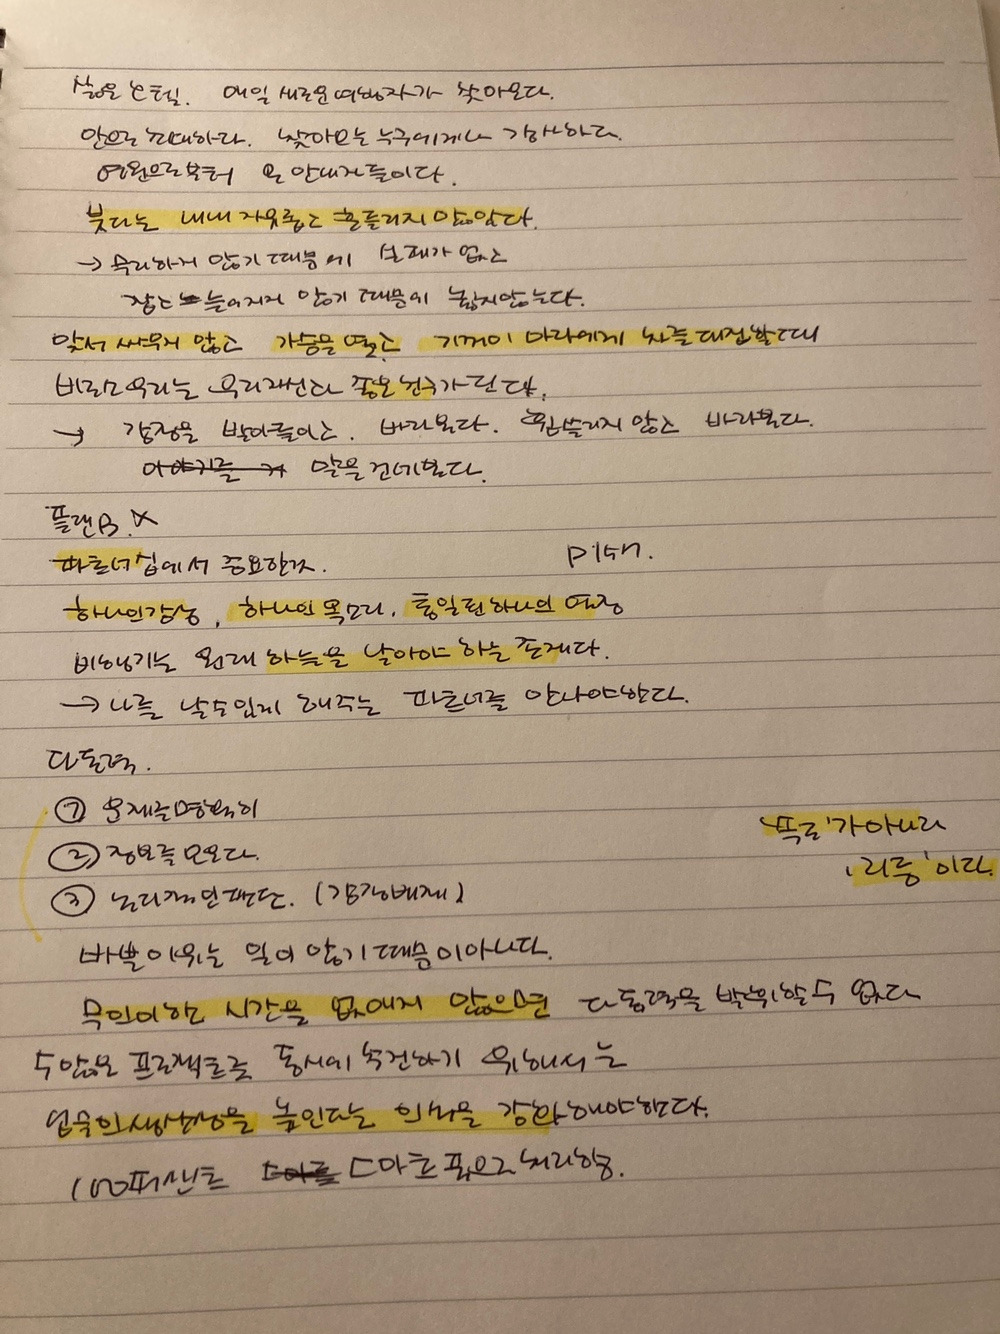 삶은 호텔. 매일 새로운 여행자가 찾아온다.
안으로 초대하라. 찾아오는 누구에게나 감사하라.
영원으로부터 온 안내자들이다.
붓다는 내내 자유롭고 흔들리지 않았다.
→ 무리하게 않기 때문에 실패가 없고
잡고 늘어지지 않기 때문에 놓지않는다.
맞서 싸우지 않고 가슴을 열고 기꺼이 마라에게 차를 대접할 때
비로소 우리는 우리자신의 좋은 친구가 된다.
→ 감정을 받아들이고. 바라본다. 휩쓸리지 않고 바라본다.
말을 건네본다.
플랜B. X
파트너십에서 중요한것. plan.
하나의 감동, 하나의 목소리, 통일된 하나의 여정
비행기는 원래 하늘을 날아야 하는 존재다.
→ 나를 날수있게 해주는 파트너를 만나야한다.
다동력.
① 문제를 명확히
② 정보를 모으다.
③ 논리적인 판단. (감정배제)
'목록'가 아니라
'리듬'이다.
바쁜 이유는 일이 많기 때문이 아니다.
무의미한 시간을 없애지 않으면 다동력을 발휘할 수 없다
수많은 프로젝트를 동시에 수건하기 위해서는
업무의 생산성을 높인다는 의식을 강화해야한다.
100퍼센트 스마트폰으로 처리함.